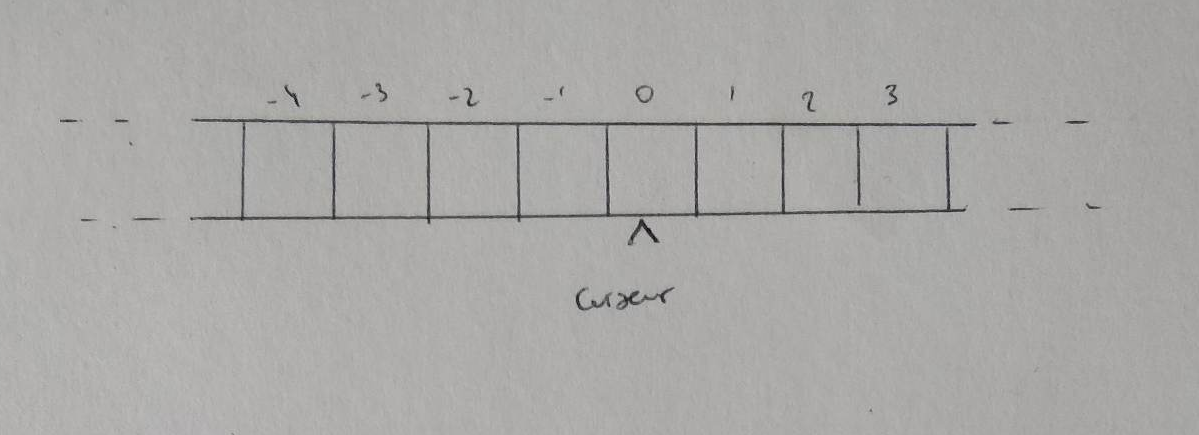 -4 -3 -2 -1 0 1 2 3
Curseur